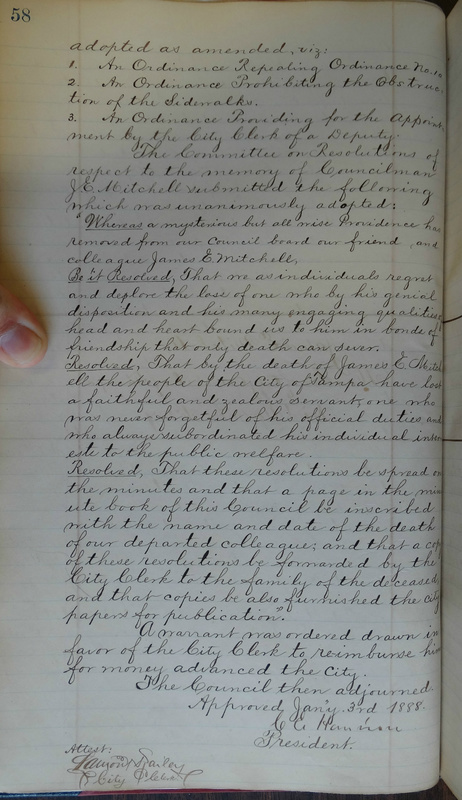 58
adopted as amended, viz:
1. An Ordinance Repealing Ordinance No. 10
2. An Ordinance Prohibiting the Obstruc-
tion of the Sidewalks.
3. An Ordinance Providing for the Appoint-
ment by the City Clerk of a Deputy.
The Committee on Resolutions of
respect to the memory of Councilman
J.E. Mitchell submitted the following
which was unanimously adopted:
"Whereas a mysterious but all wise Providence has
removed from our Council board our friend and
colleague James E. Mitchell,
Be it Resolved, That we as individuals regret
and deplore the loss of one who by his genial
disposition and his many engaging qualities
head and heart bound us to him in bonds of
friendship that only death can sever.
Resolved, That by the death of James E. Mitch
ell the people of the City of Tampa have lost
a faithful and zealous servant, one who
was never forgetful of his official duties and
who always subordinated his individual inter
ests to the public welfare.
Resolved, That these resolutions be spread on
the minutes and that a page in the min
ute book of this Council be inscribed
with the name and date of the death
of our departed colleague; and that a copy
of these resolutions be forwarded by the
City Clerk to the family of the deceased
and that copies be also furnished the city
papers for publication."
A warrant was ordered drawn in
favor of the City Clerk to reimburse him
for money advanced the city.
The Council then adjourned.
Approved Jan'y. 3rd 1888.
President.
Attest:
Bailey
City Clerk